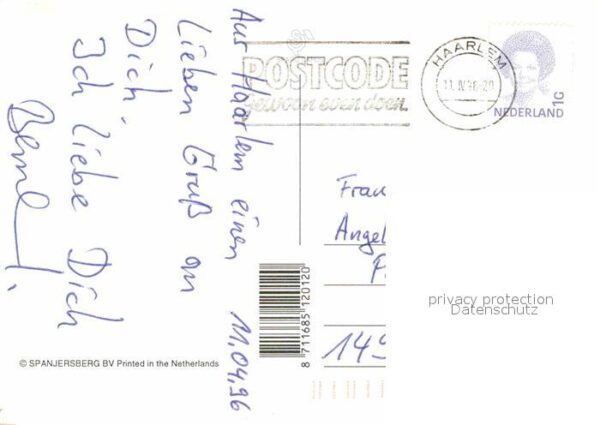 Aus Haarlem einen
11.04.96
Lieben Gruß an
Dich,
Ich liebe Dich
POSTCODE
gewoon even doen.
HAARLEM
11.IV.96-20
NEDERLAND
1G
Frau
Angel
privacy protection
Datenschutz
149
8 711685 120120
© SPANJERSBERG BV Printed in the Netherlands